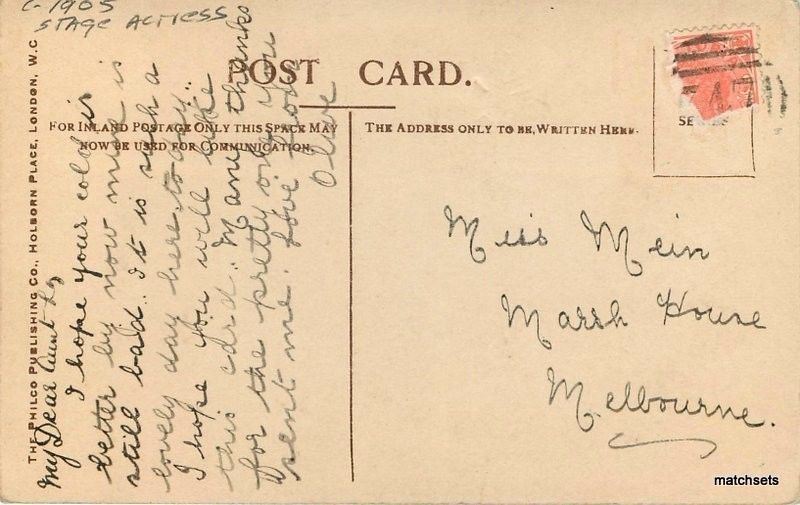 C-1905
STAGE ACTRESS
POST CARD.
FOR INLAND POSTAGE ONLY THIS SPACE MAY
NOW BE USED FOR COMMUNICATION.
THE ADDRESS ONLY TO BE WRITTEN HERE.
THE PHILCO PUBLISHING CO., HOLBORN PLACE, LONDON, W.C.
My Dear Aunt
I hope your cold is
better by now mine is
still bad. It is such a
lovely day here to day.
I hope you will like
this card. Many thanks
for the pretty one you
sent me. Love from
Olive
Miss Mein
Marsh House
Melbourne.
matchsets